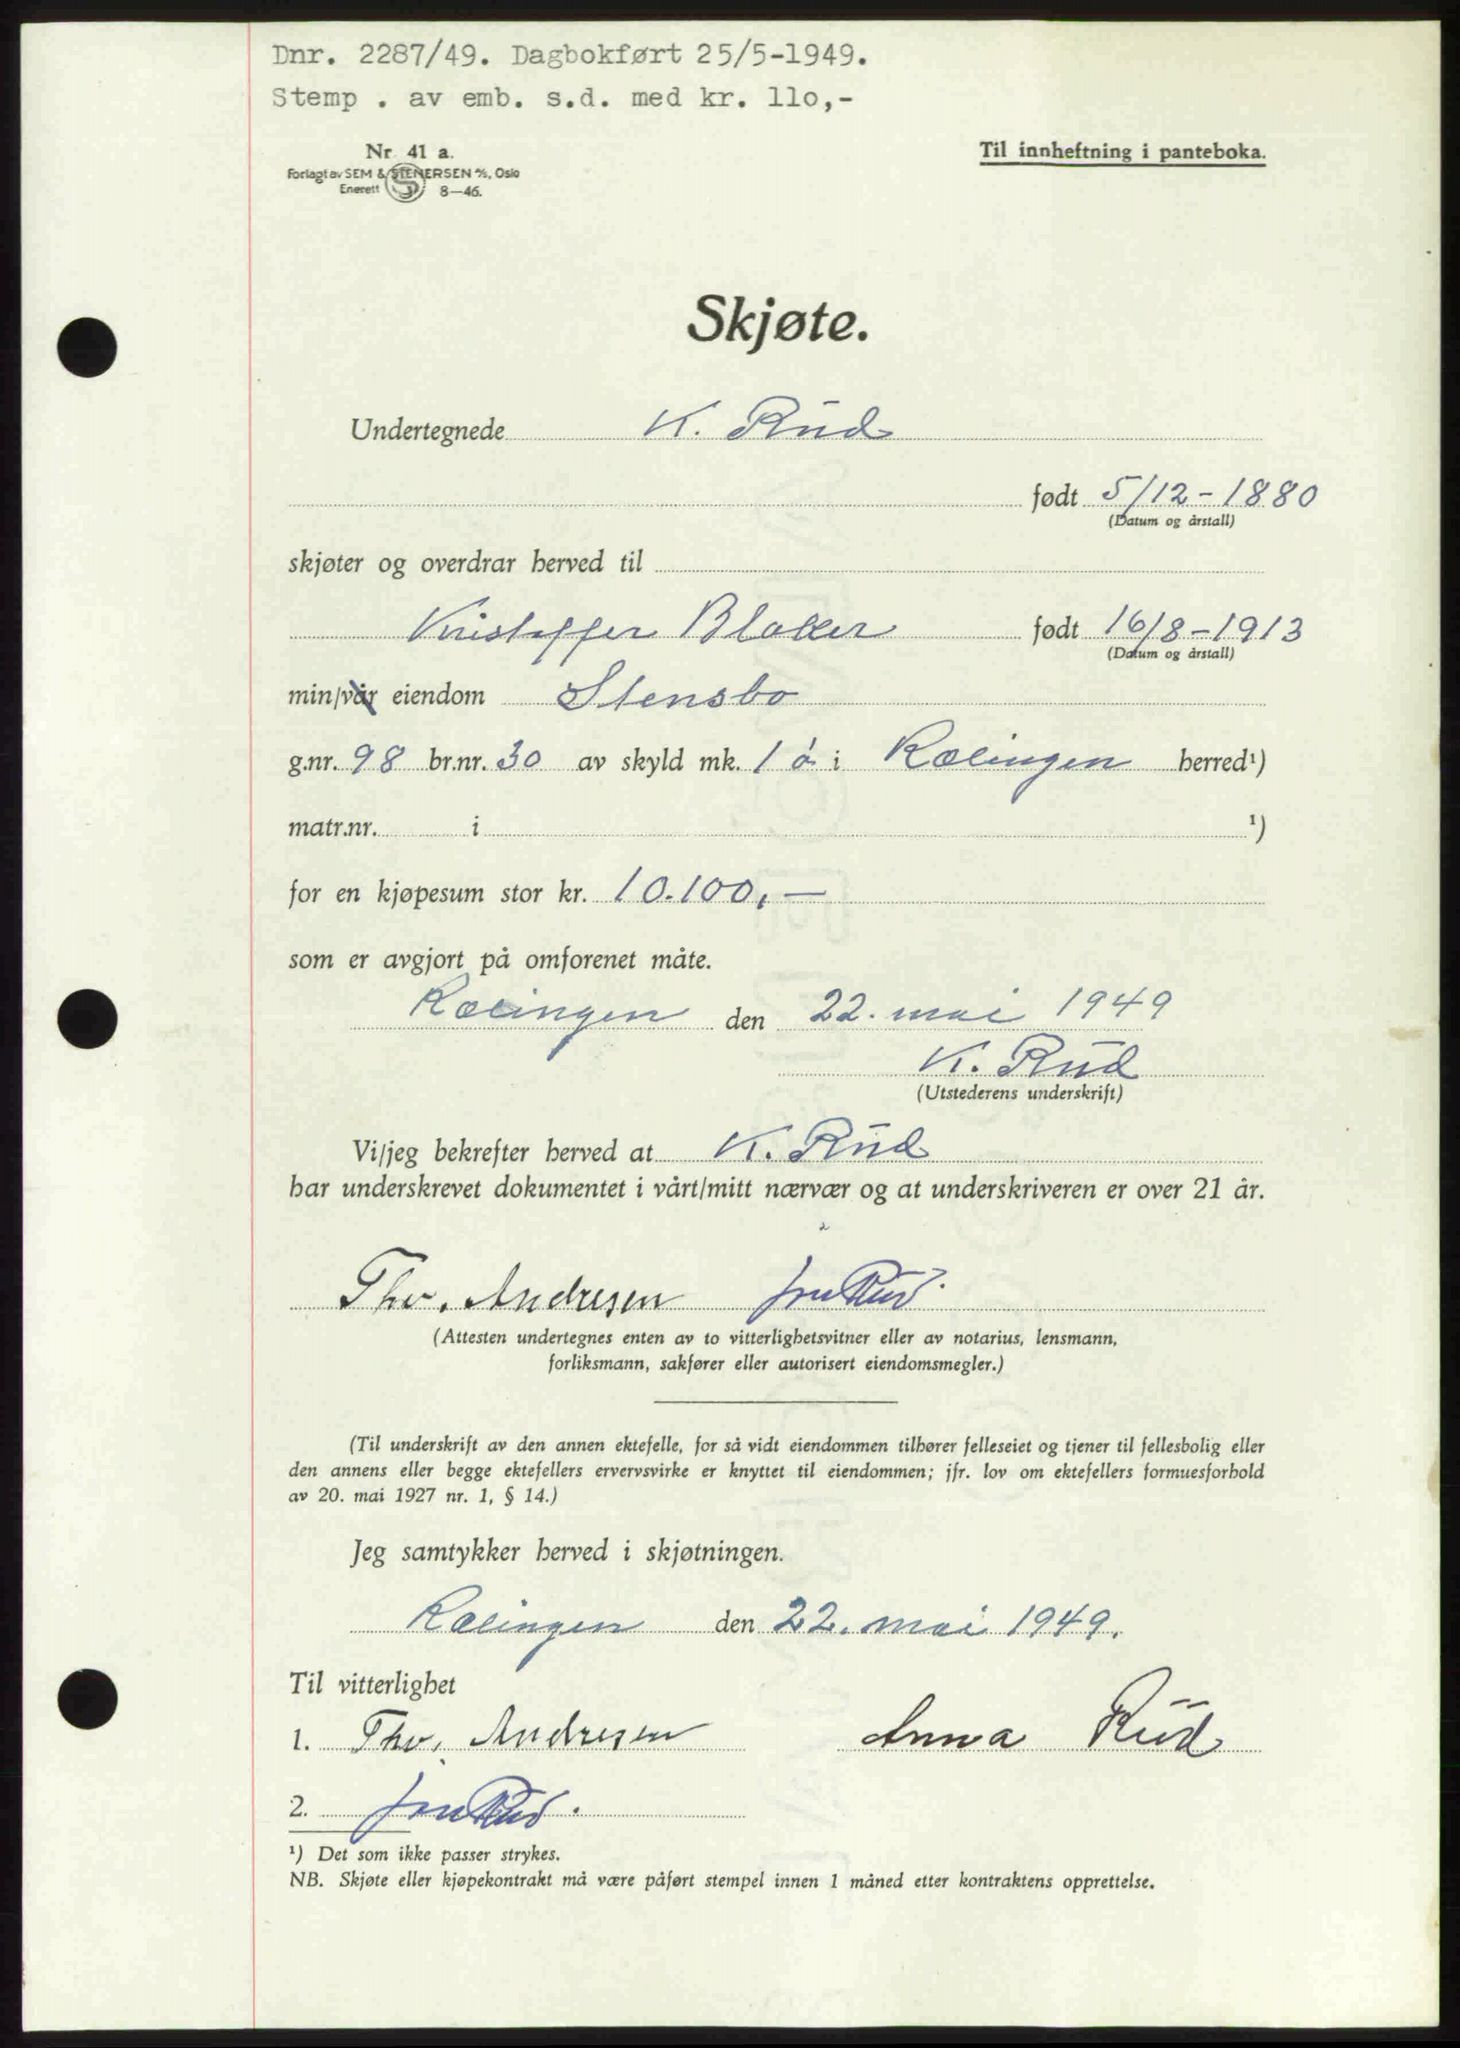 Dnr. 2287/49. Dagbokført 25/5-1949.
Stemp . av emb. s.d. med kr. 110,-
Nr. 41 a.
Forlagt av SEM & STENERSEN A/S, Oslo
Enerett 8—46.
Til innheftning i panteboka.
Skjøte.
Undertegnede K. Rud
født 5/12-1880
(Datum og årstall)
skjøter og overdrar herved til
Kristoffer Blaker født 16/8-1913
(Datum og årstall)
min/vår eiendom Stensbo
g.nr. 98 br.nr. 30 av skyld mk. 1 ø i Rælingen herred¹)
matr.nr. i ¹)
for en kjøpesum stor kr. 10.100,—
som er avgjort på omforenet måte.
Rælingen den 22. mai 1949
K. Rud
(Utstederens underskrift)
Vi/jeg bekrefter herved at K. Rud
har underskrevet dokumentet i vårt/mitt nærvær og at underskriveren er over 21 år.
Thv. Andresen Rud.
(Attesten undertegnes enten av to vitterlighetsvitner eller av notarius, lensmann,
forliksmann, sakfører eller autorisert eiendomsmegler.)
(Til underskrift av den annen ektefelle, for så vidt eiendommen tilhører felleseiet og tjener til fellesbolig eller
den annens eller begge ektefellers ervervsvirke er knyttet til eiendommen; jfr. lov om ektefellers formuesforhold
av 20. mai 1927 nr. 1, § 14.)
Jeg samtykker herved i skjøtningen.
Rælingen den 22. mai 1949.
Til vitterlighet
1. Thv. Andresen Anna Rud
2. Rud.
¹) Det som ikke passer strykes.
NB. Skjøte eller kjøpekontrakt må være påført stempel innen 1 måned etter kontraktens opprettelse.